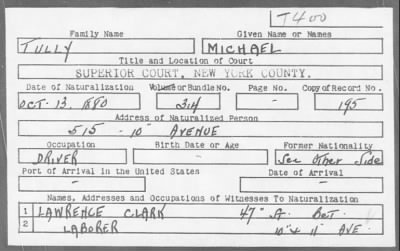 T400
Family Name Given Name or Names
TULLY MICHAEL
Title and Location of Court
SUPERIOR COURT, NEW YORK COUNTY.
Date of Naturalization Volume or Bundle No. Page No. Copy of Record No.
OCT. 13. 1880 314 - 195
Address of Naturalized Person
515 - 10" AVENUE
Occupation Birth Date or Age Former Nationality
DRIVER - See Other Side
Port of Arrival in the United States Date of Arrival
- -
Names, Addresses and Occupations of Witnesses To Naturalization
1 LAWRENCE CLARK 47" St. BET.
2 LABORER 10" & 11" AVE.